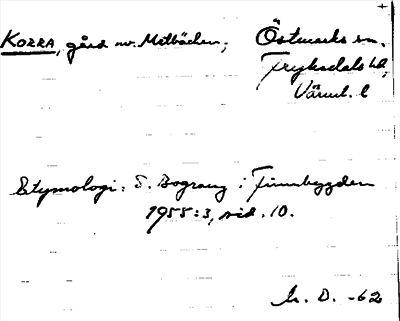 KORRA, gård nv. Mitbäcken; Östmarks sn.
Fryksdals hd,
Värml. l
Etymologi: S. Bograng i Finnbygden
1955:3, sid. 10.
h. D. -62